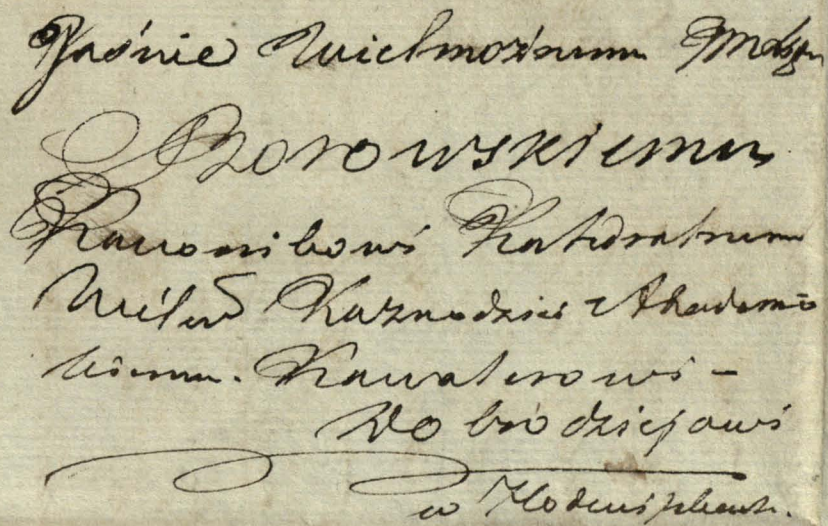 Jaśnie Wielmożnemu
Borowskiemu
Kanonikowi Katedralnemu
Kaznodziei Akademic
kiemu. Kawalerowi –
Dobrodziejowi
w